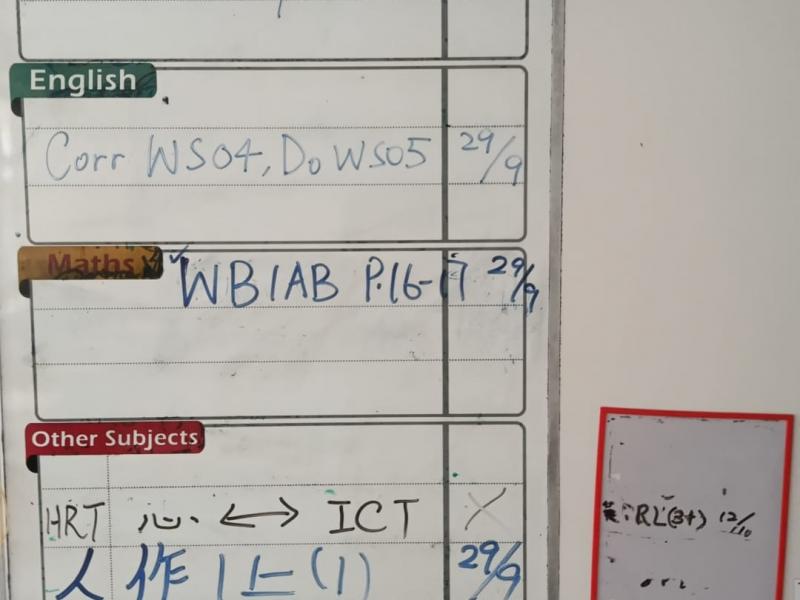 English
Corr WS04, Do WS05 29/9
Maths
WB1AB P.16-17 29/9
Other Subjects
HRT 心 ↔ ICT X
人 作 1上(1) 29/9
英:RL(3+) 12/10